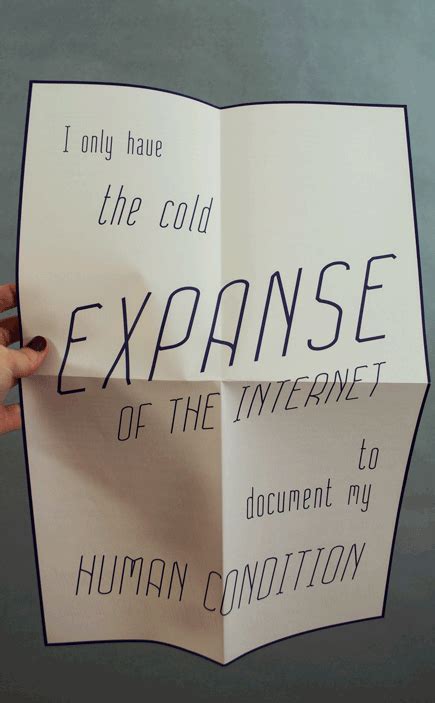 I only have
the cold
EXPANSE
OF THE INTERNET
to
document my
HUMAN CONDITION